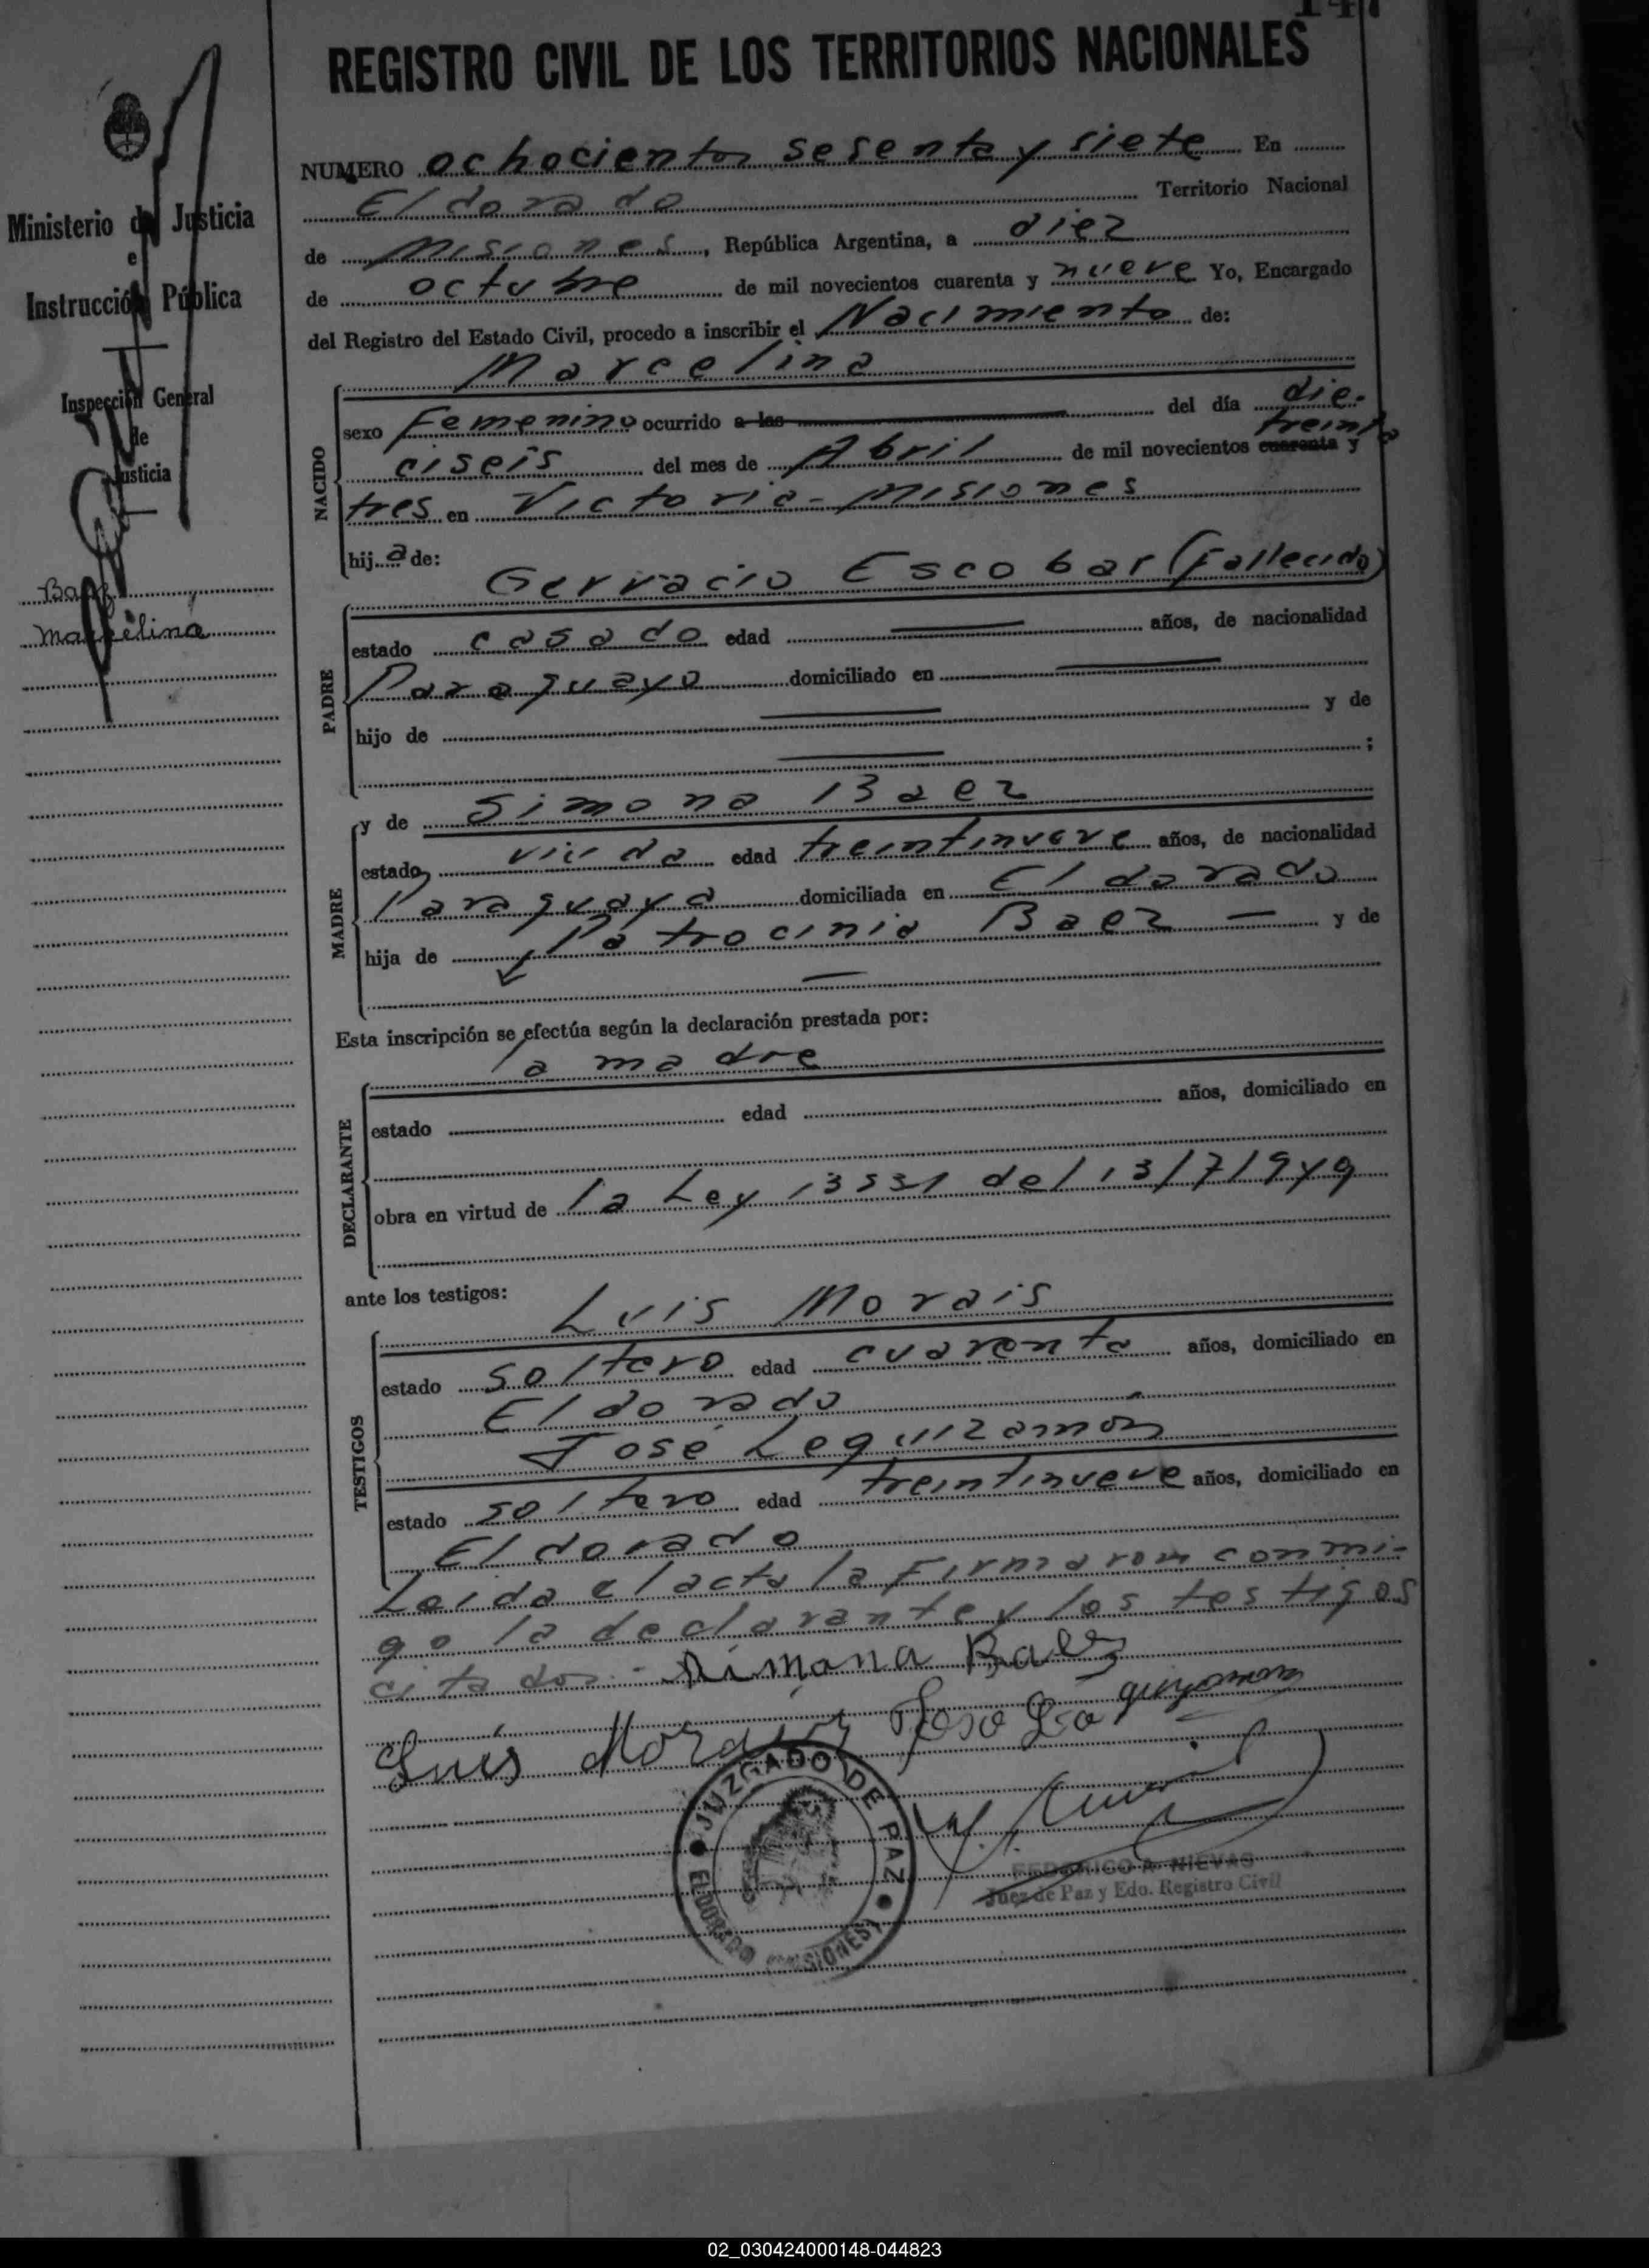 147
REGISTRO CIVIL DE LOS TERRITORIOS NACIONALES
Ministerio de Justicia
e
Instrucción Pública
Inspección General
de
Justicia
Baez
Marcelina
NUMERO ochocientos sesenta y siete En
Eldorado Territorio Nacional
de Misiones, República Argentina, a diez
de octubre de mil novecientos cuarenta y nueve Yo, Encargado
del Registro del Estado Civil, procedo a inscribir el Nacimiento de:
Marcelina
NACIDO
sexo Femenino ocurrido a las del día die-
ciseis del mes de Abril de mil novecientos cuarenta treinta y
tres en Victoria - Misiones
hija de:
Gervacio Escobar (Fallecido)
PADRE
estado casado edad años, de nacionalidad
Paraguayo domiciliado en
hijo de y de
;
y de Simona Baez
MADRE
estado viuda edad treintinueve años, de nacionalidad
Paraguaya domiciliada en Eldorado
hija de Patrocinia Baez — y de
—
Esta inscripción se efectúa según la declaración prestada por:
la madre
DECLARANTE
estado edad años, domiciliado en
obra en virtud de la Ley 13531 del 13/7/949
ante los testigos:
Luis Morais
TESTIGOS
estado soltero edad cuarenta años, domiciliado en
Eldorado
José Leguizamón
estado soltero edad treintinueve años, domiciliado en
Eldorado
Leida el acta la Firmaron conmi-
go la declarante y los testigos
citados.- Simona Baez
Luís Morais
JUZGADO DE PAZ
ELDORADO (MISIONES)
FEDERICO A. NIEVAS
Juez de Paz y Edo. Registro Civil
02_030424000148-044823